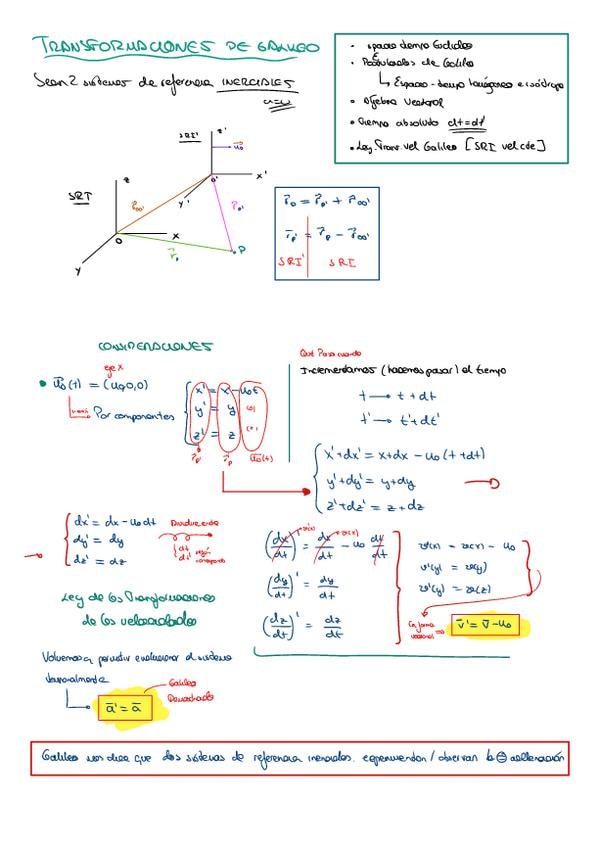 TRANSFORMACIONES DE GALILEO
Sean 2 sistemas de referencia INERCIALES
• Espacio tiempo Euclideo
• Postulados de Galileo
↳ Espacio-tiempo homogéneo e isótropo
• Algebra Vectorial
• Tiempo absoluto dt=dt'
• Ley Trans. vel Galileo [SRI vel cte]
SRI'
z'
u₀
O'
x'
y'
SRI
z
r_OO'
r_P'
O
x
P
y
r_P
r_P = r_P' + r_OO'
r_P' = r_P - r_OO'
SRI' SRI
CONSIDERACIONES
eje X
• u₀(t) = (u₀,0,0)
Por componentes
x' = x - u₀t
y' = y (0)
z' = z
r_P' r_P u₀(t)
Qué Pasa cuando
Incrementamos (hacemos pasar) el tiempo
t → t + dt
t' → t' + dt'
x'+dx' = x+dx - u₀(t+dt)
y'+dy' = y+dy
z'+dz' = z+dz
dx' = dx - u₀dt
dy' = dy
dz' = dz
Dividiendo
dt
dt'
según corresponda
(dx/dt)' = dx/dt - u₀ dt/dt
(dy/dt)' = dy/dt
(dz/dt)' = dz/dt
v'(x) = v(x) - u₀
v'(y) = v(y)
v'(z) = v(z)
En forma vectorial ⇒ v' = v - u₀
Ley de las Transformaciones
de las velocidades
Volvemos a permitir evolucionar el sistema
temporalmente
a' = a
Galileo
Demostrado
Galileo nos dice que dos sistemas de referencia inerciales experimentan / observan la = aceleración